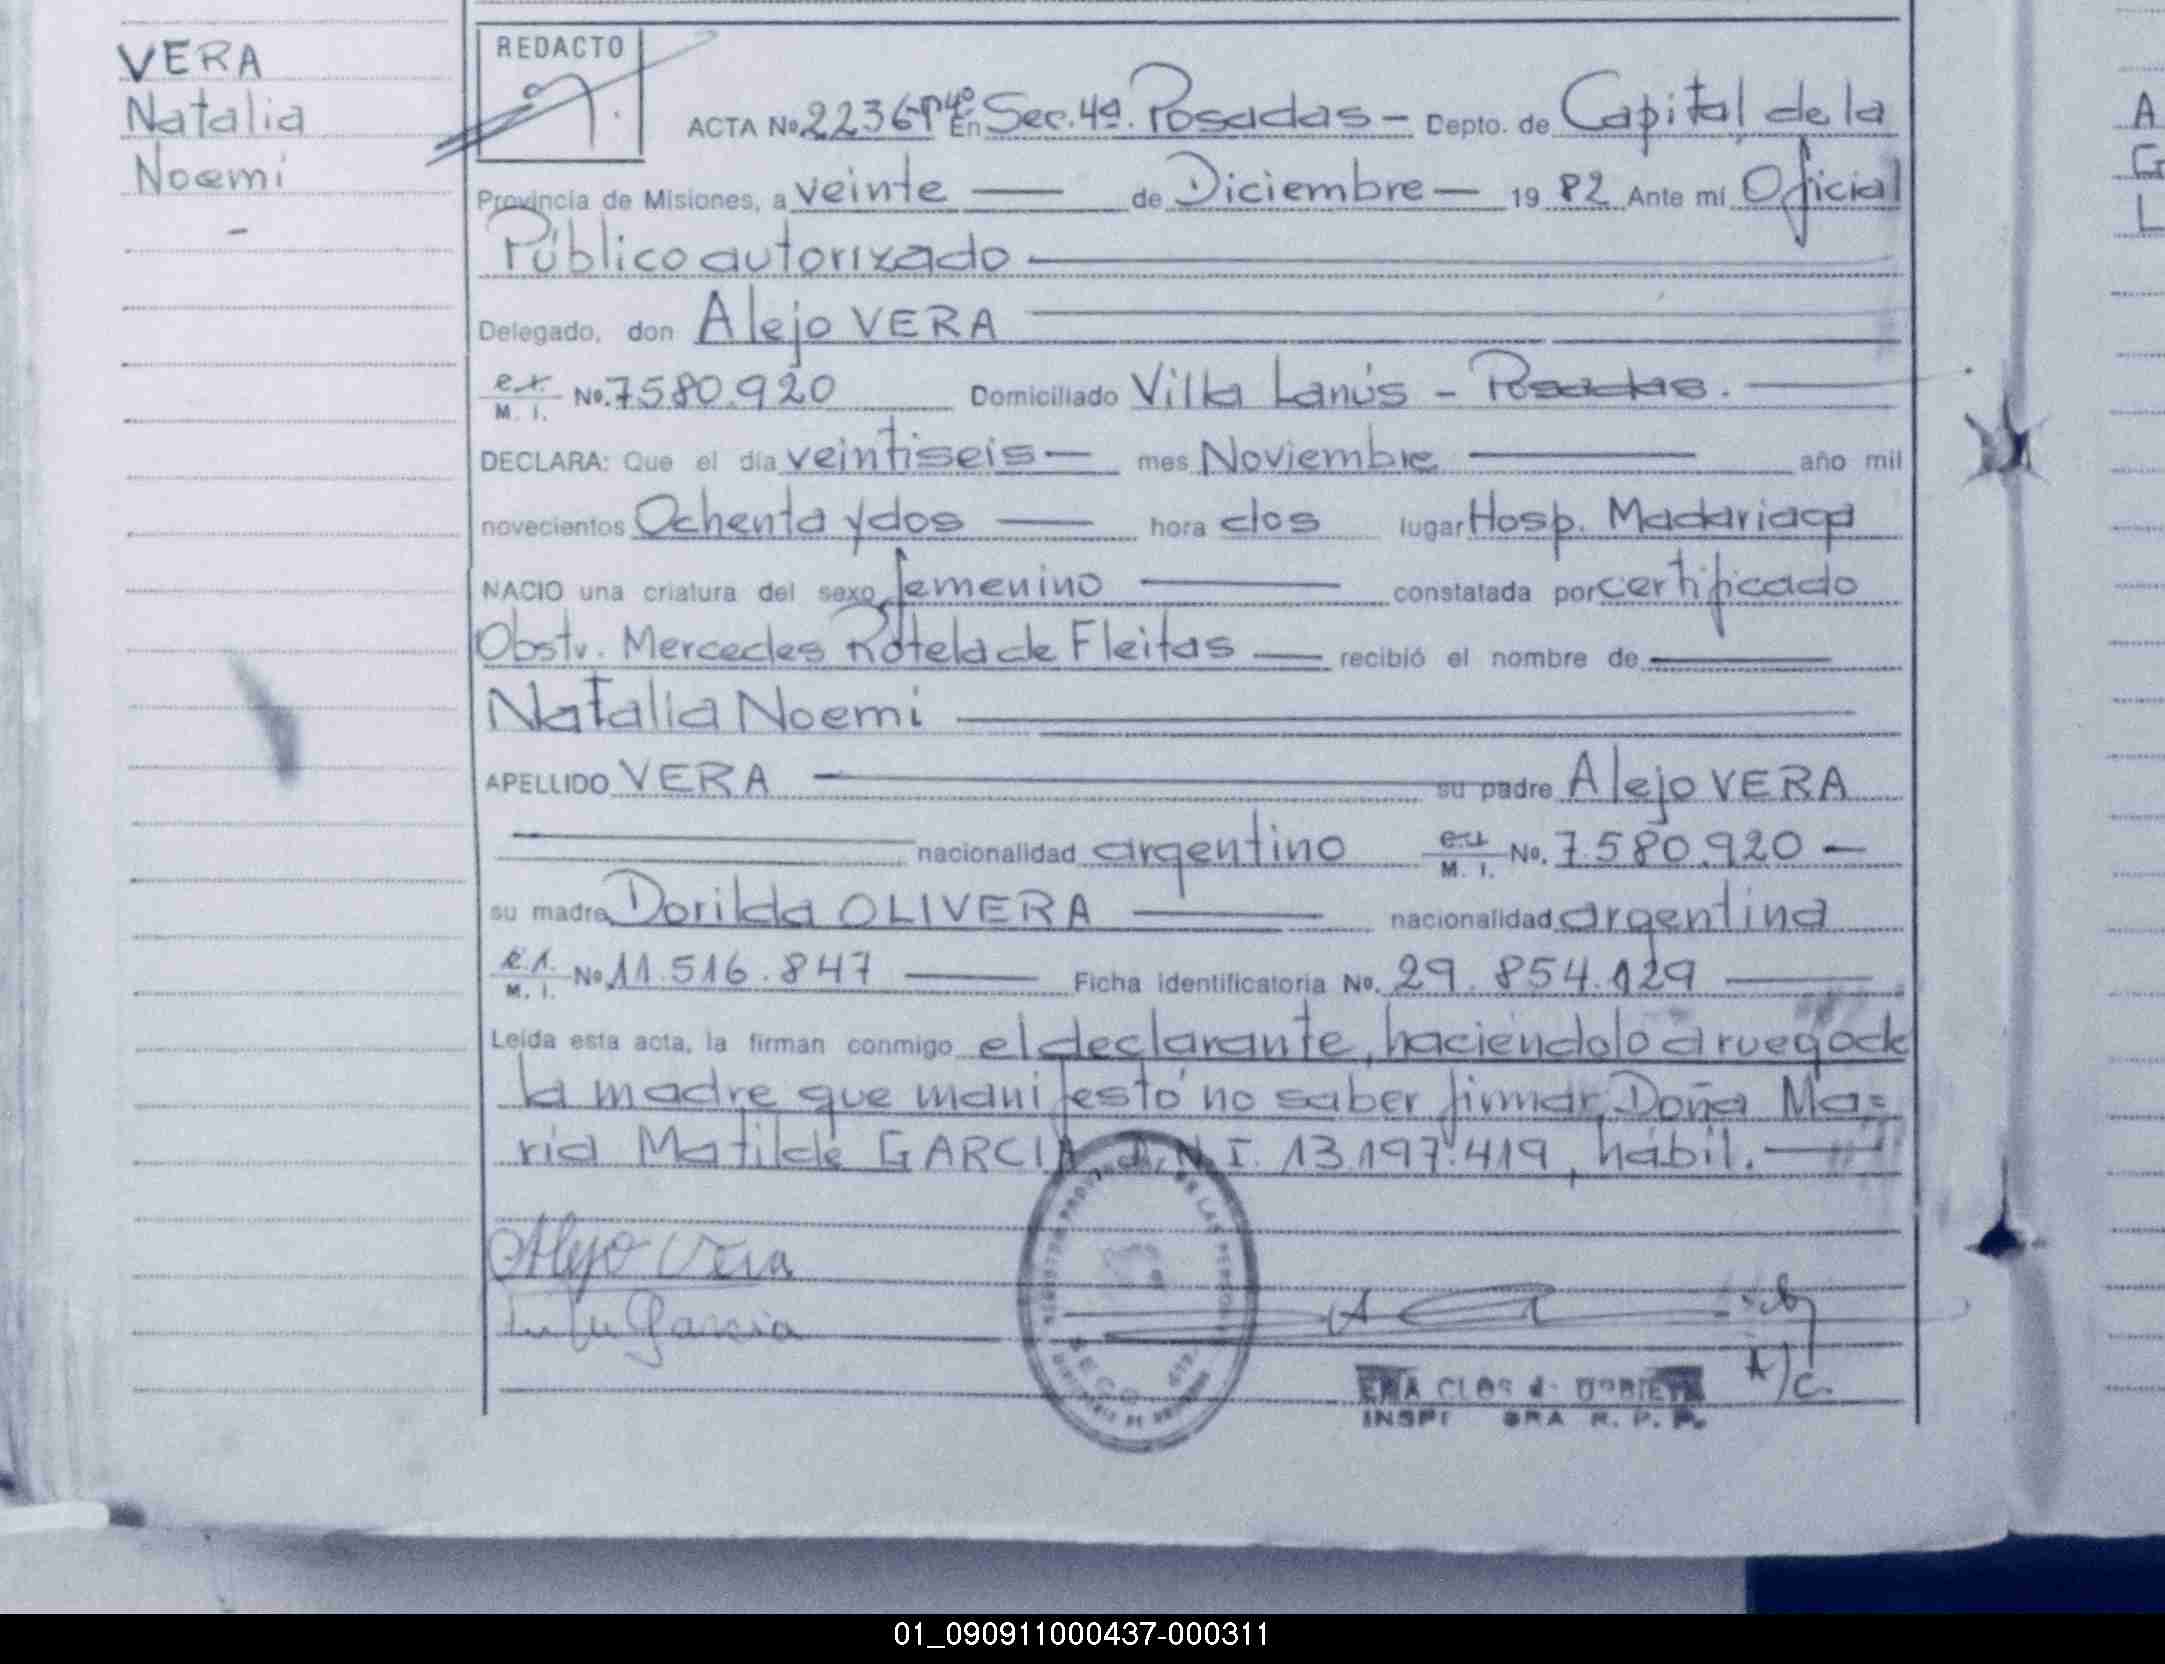 VERA
Natalia
Noemi
-
REDACTO
ACTA No 2236 Tº 4º En Sec. 4ª. Posadas - Depto. de Capital, de la
Provincia de Misiones, a veinte — de Diciembre — 19 82 Ante mí Oficial
Público autorizado —
Delegado, don Alejo VERA —
M. I. No. 7580.920 Domiciliado Villa Lanús - Posadas. —
DECLARA: Que el día veintiseis — mes Noviembre — año mil
novecientos Ochenta y dos — hora dos lugar Hosp. Madariaga
NACIO una criatura del sexo femenino — constatada por certificado
Obstr. Mercedes Rotela de Fleitas — recibió el nombre de —
Natalia Noemi —
APELLIDO VERA — su padre Alejo VERA
— nacionalidad argentino M. I. No. 7.580.920 —
su madre Dorilda OLIVERA — nacionalidad argentina
M. I. No. 11.516.847 — Ficha identificatoria No. 29.854.129 —
Leída esta acta, la firman conmigo el declarante, haciéndolo a ruego de
la madre que manifestó no saber firmar, Doña Ma=
ria Matilde GARCIA D.N.I. 13.197.419, hábil. —
Alejo Vera
Garcia
A/C.
R. P. P.
A
G
L
01_090911000437-000311